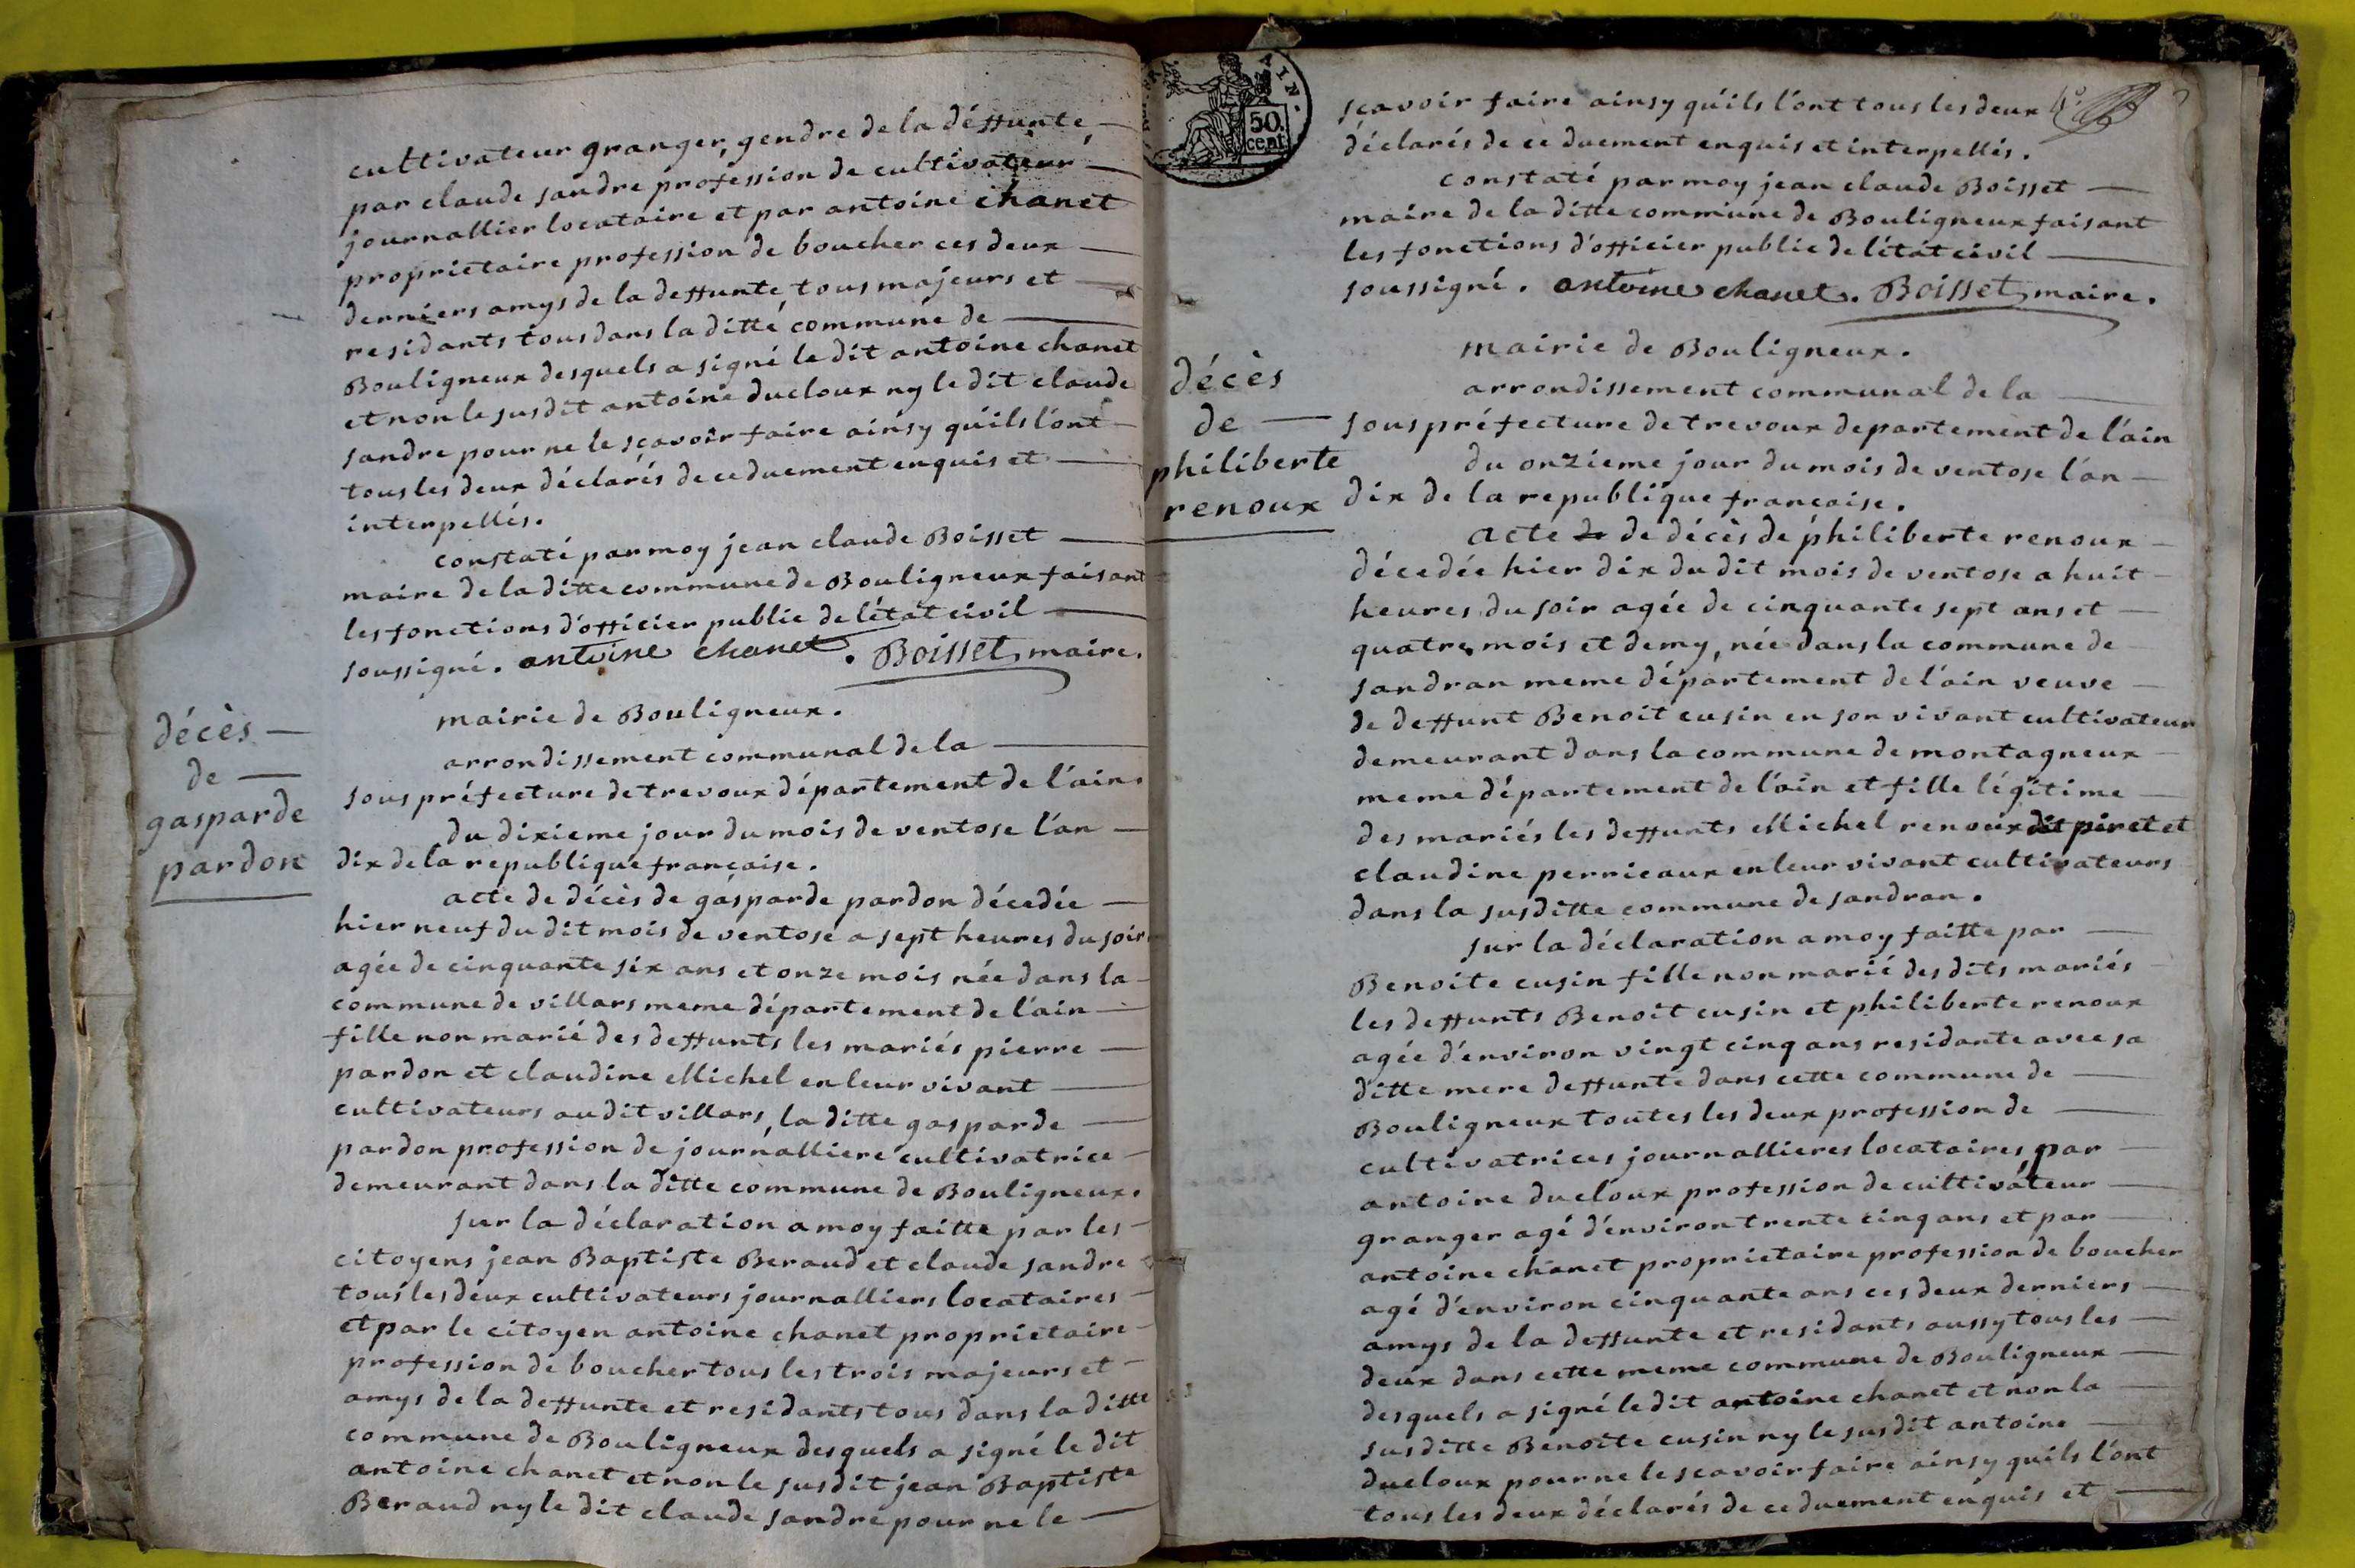 cultivateur granger, gendre de la déffunte,
par claude sandre profession de cultivateur
journallier locataire et par antoine chanet
proprietaire profession de boucher ces deux
derniers amys de la deffunte, tous majeurs et
residants tous dans la ditte commune de
Bouligneux desquels a signé le dit antoine chanet
et non le susdit antoine ducloux ny le dit claude
sandre pour ne le sçavoir faire ainsy qu'ils l'ont
tous les deux déclarés de ce duement enquis et
interpellés.
constaté par moy jean claude Boisset
maire de la ditte commune de Bouligneux faisant
les fonctions d'officier public de l'état civil
soussigné. antoine chanet. Boisset, maire.
décès
de
gasparde
pardon
mairie de Bouligneux.
arrondissement communal de la
sous préfecture de trevoux département de l'ain.
du dixieme jour du mois de ventose l'an
dix de la republique française.
acte de décès de gasparde pardon décedée
hier neuf du dit mois de ventose a sept heures du soir
agée de cinquante six ans et onze mois née dans la
commune de villars meme département de l'ain
fille non marié des deffunts les mariés pierre
pardon et claudine Michel en leur vivant
cultivateurs audit villars, la ditte gasparde
pardon profession de journalliere cultivatrice
demeurant dans la ditte commune de Bouligneux.
sur la déclaration a moy faitte par les
citoyens jean Baptiste Beraud et claude sandre
tous les deux cultivateurs journalliers locataires
et par le citoyen antoine chanet proprietaire
profession de boucher tous les trois majeurs et
amys de la deffunte et residants tous dans la ditte
commune de Bouligneux desquels a signé le dit
antoine chanet et non le susdit jean Baptiste
Beraud ny le dit claude sandre pour ne le
AIN.
50.
cent
sçavoir faire ainsy qu'ils l'ont tous les deux
déclarés de ce duement enquis et interpellés.
constaté par moy jean claude Boisset
maire de la ditte commune de Bouligneux faisant
les fonctions d'officier public de l'état civil
soussigné. antoine chanet. Boisset, maire.
décès
de
philiberte
renoux
mairie de Bouligneux.
arrondissement communal de la
sous préfecture de trevoux departement de l'ain
du onzieme jour du mois de ventose l'an
dix de la republique francaise.
acte de de décès de philiberte renoux
décedée hier dix du dit mois de ventose a huit
heures du soir agée de cinquante sept ans et
quatre mois et demy, née dans la commune de
sandran meme département de l'ain veuve
de deffunt Benoit cusin en son vivant cultivateur
demeurant dans la commune de montagneux
meme département de l'ain et fille légitime
des mariés les deffunts Michel renoux dit piret et
claudine perrieaux en leur vivant cultivateurs
dans la susditte commune de sandran.
sur la déclaration a moy faitte par
Benoite cusin fille non marié des dits mariés
les deffunts Benoit cusin et philiberte renoux
agée d'environ vingt cinq ans residante avec sa
ditte mere deffunte dans cette commune de
Bouligneux toutes les deux profession de
cultivatrices journallieres locataires, par
antoine ducloux profession de cultivateur
granger agé d'environ trente cinq ans et par
antoine chanet proprietaire profession de boucher
agé d'environ cinquante ans ces deux derniers
amys de la deffunte et residants aussy tous les
deux dans cette meme commune de Bouligneux
desquels a signé le dit antoine chanet et non la
susditte Benoite cusin ny le susdit antoine
ducloux pour ne le scavoir faire ainsy quils l'ont
tous les deux déclarés de ce duement enquis et